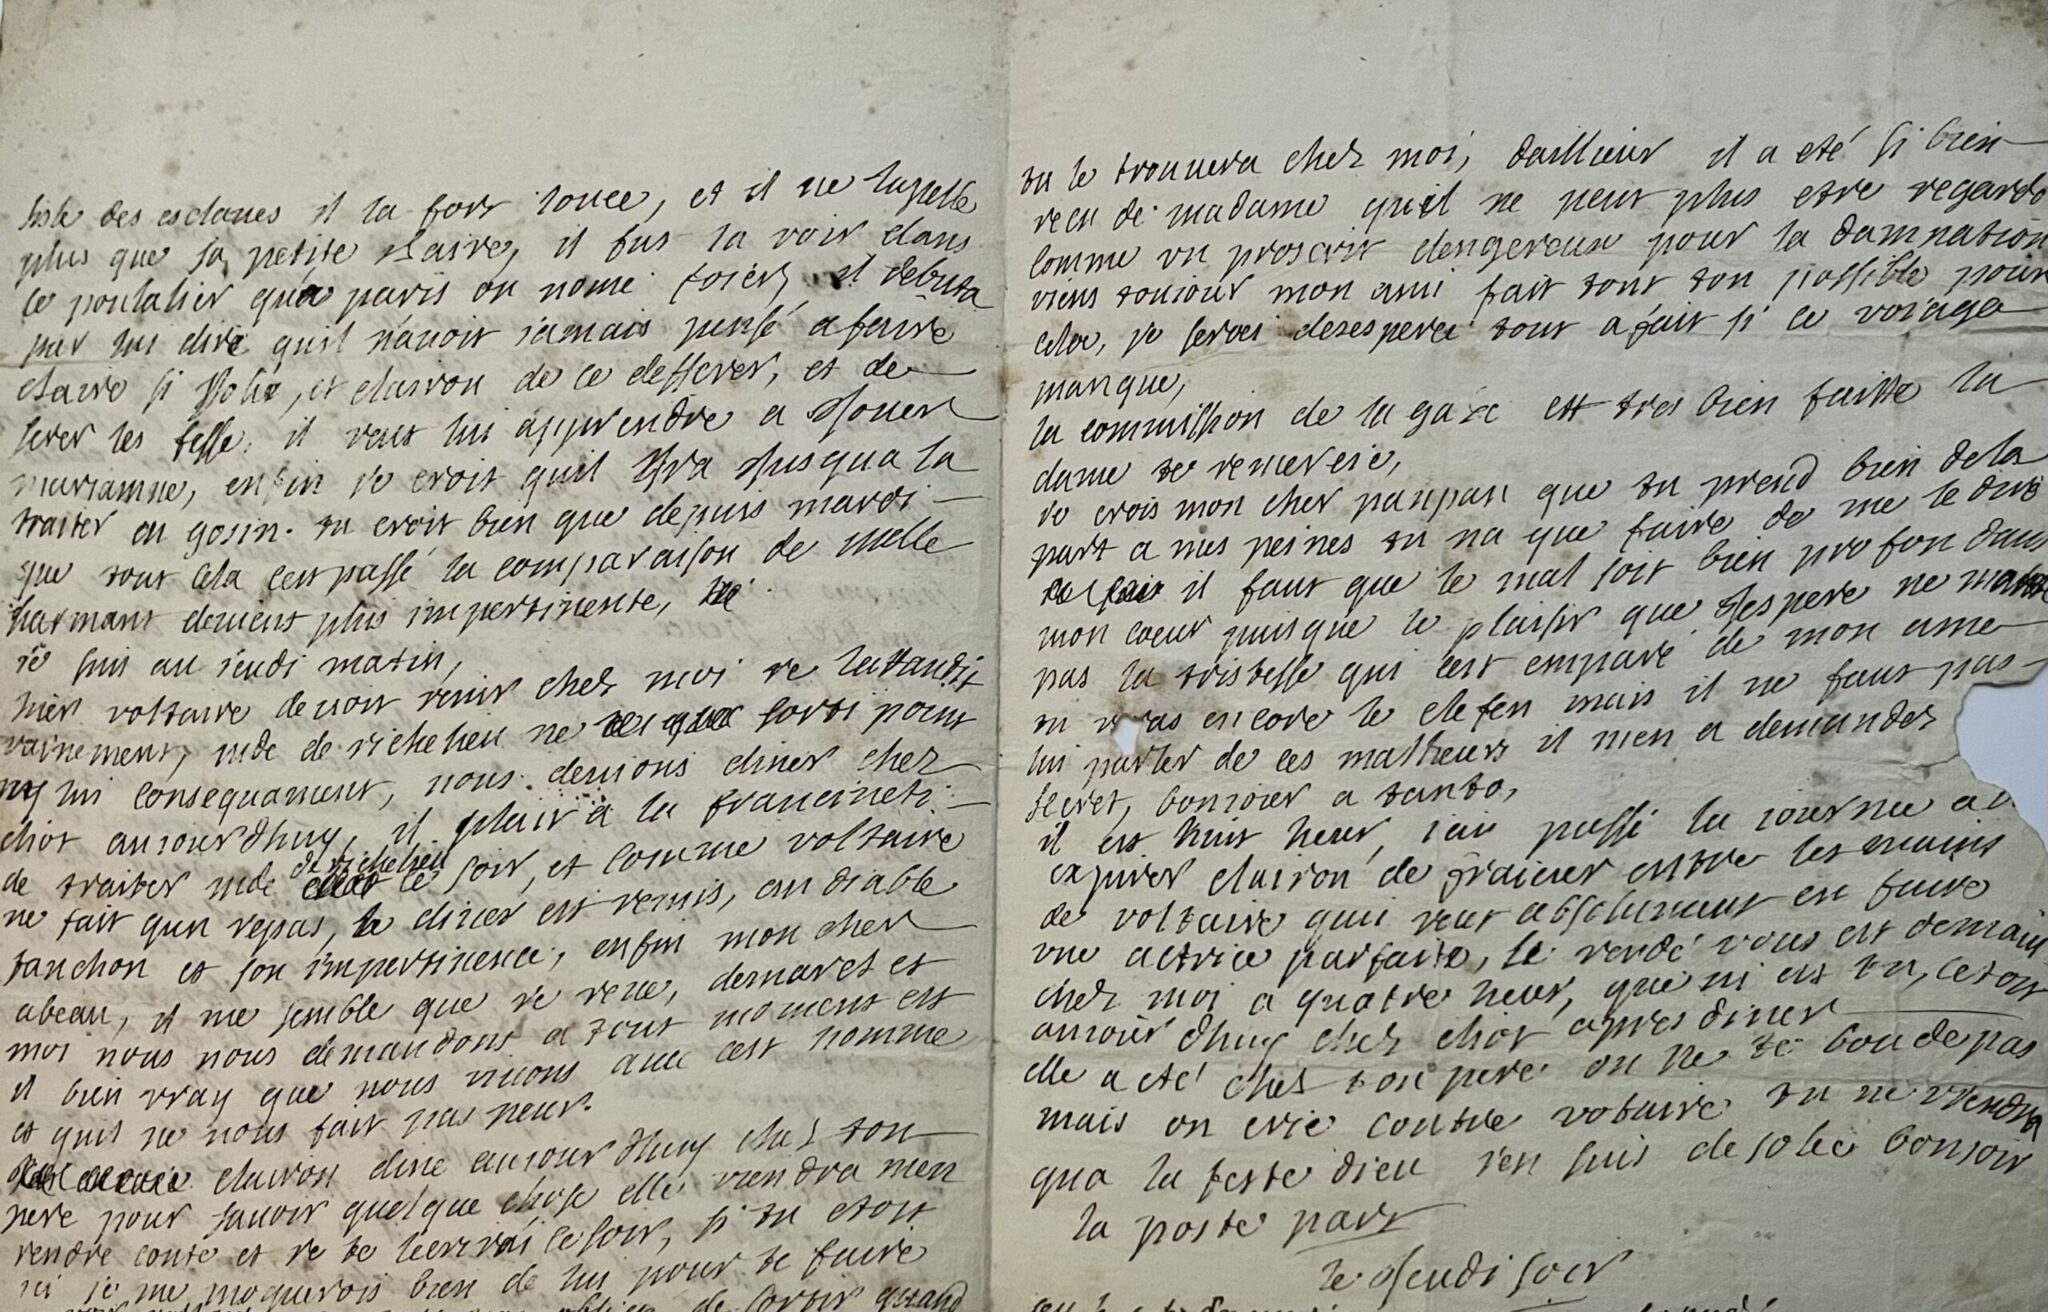 liste des esclaves il la fort louee, et il ne lapelle
plus que sa petite Zaire, il fut la voir dans
ce poulalier qu'a paris on nome foiers il debuta
par lui dire qu'il n'avoit iamais pensé a faire
claire si Jolie, et clairon de ce deffever, et de
serer les fesse, il veut lui apprendre a Jouer
mariamne, enfin ie croit quil Jra Jusqua la
traiter en gosin. tu croit bien que depuis mardi
que tout cela cest passé la comparaison de melle
harmant devient plus impertinente,
ie suis au ieudi matin,
hier voltaire devoit venir chez moi ie lattandit
vainement, mde de richelieu ne sorti point
ny lui consequament, nous devions diner chez
chot auiourdhuy, il plait a la francineti
de traiter mde de richelieu ce soir, et comme voltaire
ne fait qun repas, le diner est remis, au diable
fanchon et son impertinence, enfin mon cher
abeau, il me semble que ie reve, demaret et
moi nous nous demandons a tout moment est
il bien vray que nous vivons avec cest homme
et quil ne nous fait pas peur.
clairon dine auiourdhuy chez ton
pere pour savoir quelque chose elle viendra men
rendre conte et ie te lecrirai ce soir, si tu etoit
ici je me moquerois bien de lui pour te faire
de sortir quand
tu le trouvera chez moi, daillieur il a eté si bien
recu de madame quil ne peut plus etre regardé
comme un proscrit dengereux pour la damnation
viens touiour mon ami fait tout ton possible pour
cela, je serai desesperée tout a fait si ce voiage
manque,
la commission de la gaze est tres bien faitte la
dame te remercie,
ie crois mon cher panpan que tu prend bien dela
part a mes peines tu na que faire de me le dire
il faut que le mal soit bien profon dans
mon coeur puisque le plaisir que Jespere ne
pas la tristesse qui cest emparé de mon ame
tu veras encore le defen mais il ne faut pas
lui parler de ces malheurs il men a demandez
secret, bonioier a tanto,
il est huit heur, iai passé la iournee a
clairon de fraicur entre les mains
de voltaire qui veut absolument en faire
une actrice parfaite, le rendé vous est demain
chez moi a quatre heur, que ni est tu, cetoit
auiour dhuy chez chot apres diner
elle a eté chez ton pere on ne te boude pas
mais on crie contre votaire tu ne viendra
qua la feste dieu ien suis desolée bonsoir
la poste part
le Jeudi soir